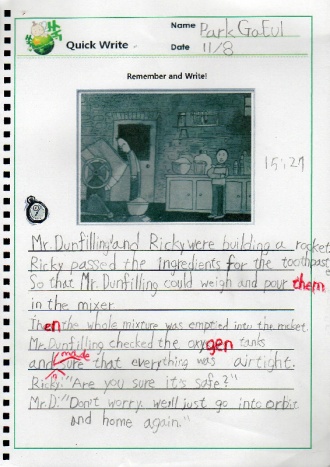 Quick Write
Name Park GaEul
Date 11/8
Remember and Write!
15:27
Mr. Dunfilling and Ricky were building a rocket
Ricky passed the ingredients for the toothpaste
So that Mr. Dunfilling could weigh and pour them
in the mixer
Then the whole mixture was emptied into the rocket.
Mr. Dunfilling checked the oxygen tanks
and made sure that everything was airtight.
Ricky: "Are you sure it's safe?"
Mr.D: "Don't worry. We'll just go into orbit
and home again."